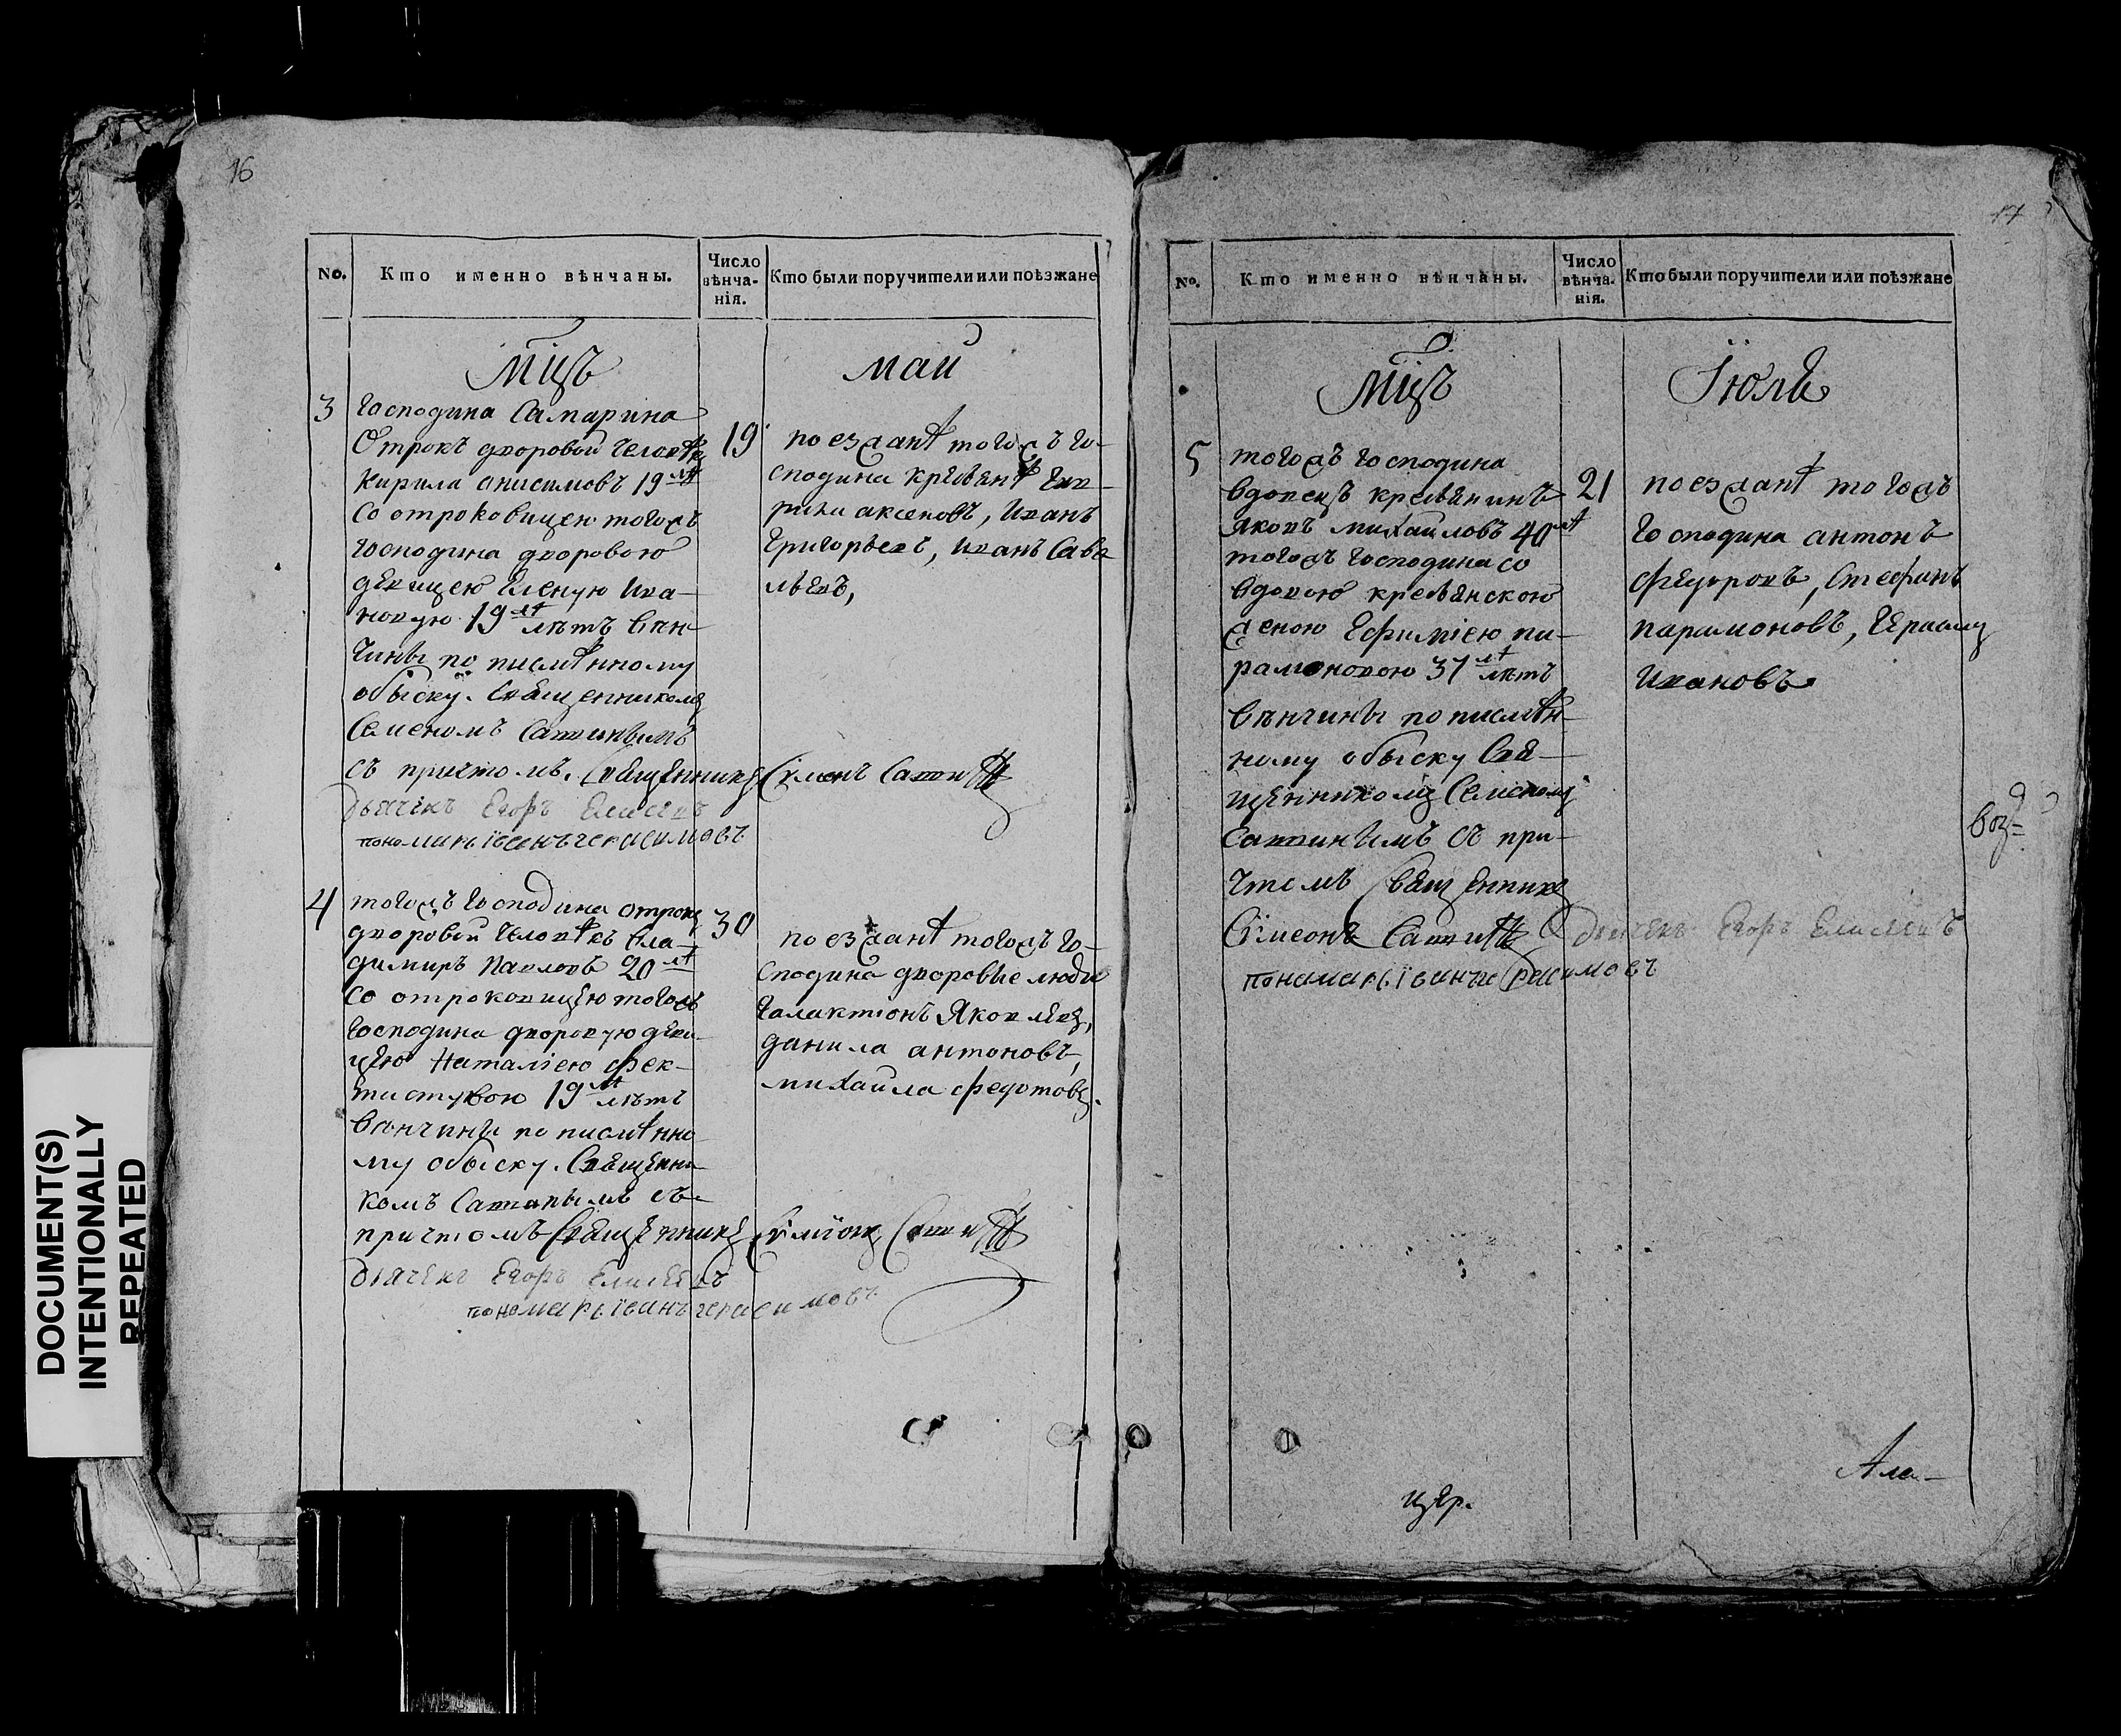 16
No.
Кто именно вѣнчаны.
Число вѣнча-
нія.
Кто были поручители или поѣзжане
Мцъ
май
3
Господина Самарина
Отрокъ дворовой человѣкъ
Кирила анисимовъ 19 лѣ
19
Со отроковицею тогожъ
господина дворовою
девицею Еленую Ива-
новую 19 лѣтъ вѣн-
чины по писменному
обыску. Священникомъ
Семеномъ Сатинымъ
съ причтомъ. Священникъ Симеонъ Сатинъ
Дьячекъ Егоръ Елисеевъ
пономарь Іванъ герасимовъ
поезжане тогожъ го-
сподина крѣьяне Гав-
рила аксеновъ, Иванъ
Григорьевъ, иванъ Саве
льевъ,
4
тогожъ господина отрокъ
дворовой человѣкъ Вла-
димиръ Павловъ 20 лѣ
30
со отроковицею тогожъ
Господина дворовую деви-
цею Наталіею Фек-
тистувою 19 лѣтъ
вѣнчины по писменно-
му обыску. Священни-
комъ Сатинымъ съ
причтомъ Священникъ Симіонъ Сатинъ
Дьячекъ Егоръ Елисеевъ
пономарь Іванъ герасимовъ
поезжане тогожъ го-
сподина дворовые люди
Галактіонъ Яковлевъ,
данила антоновъ,
михаила федотовъ.
17
No.
Кто именно вѣнчаны.
Число
вѣнча-
нія.
Кто были поручители или поѣзжане
Мцъ
Іюль
5
тогожъ господина
вдовецъ кресьянинъ
яковъ михаиловъ 40 лѣ
21
тогожъ господина со
вдовою кресьянскою
женою Ефиміею па-
рамоновою 37 лѣтъ
вѣнчины по писмен-
ному обыску Свя-
щенникомъ Семеномъ
Сатинимъ съ при-
чтемъ Священникъ
Симеонъ Сатинъ Дьячекъ Егоръ Елисеевъ
пономарь Іванъ герасимовъ
поезжане тогожъ
господина антонъ
федоровъ, Стефанъ
парамоновъ, Герасимъ
Ивановъ
цер.
Ала-
DOCUMENT(S)
INTENTIONALLY
REPEATED